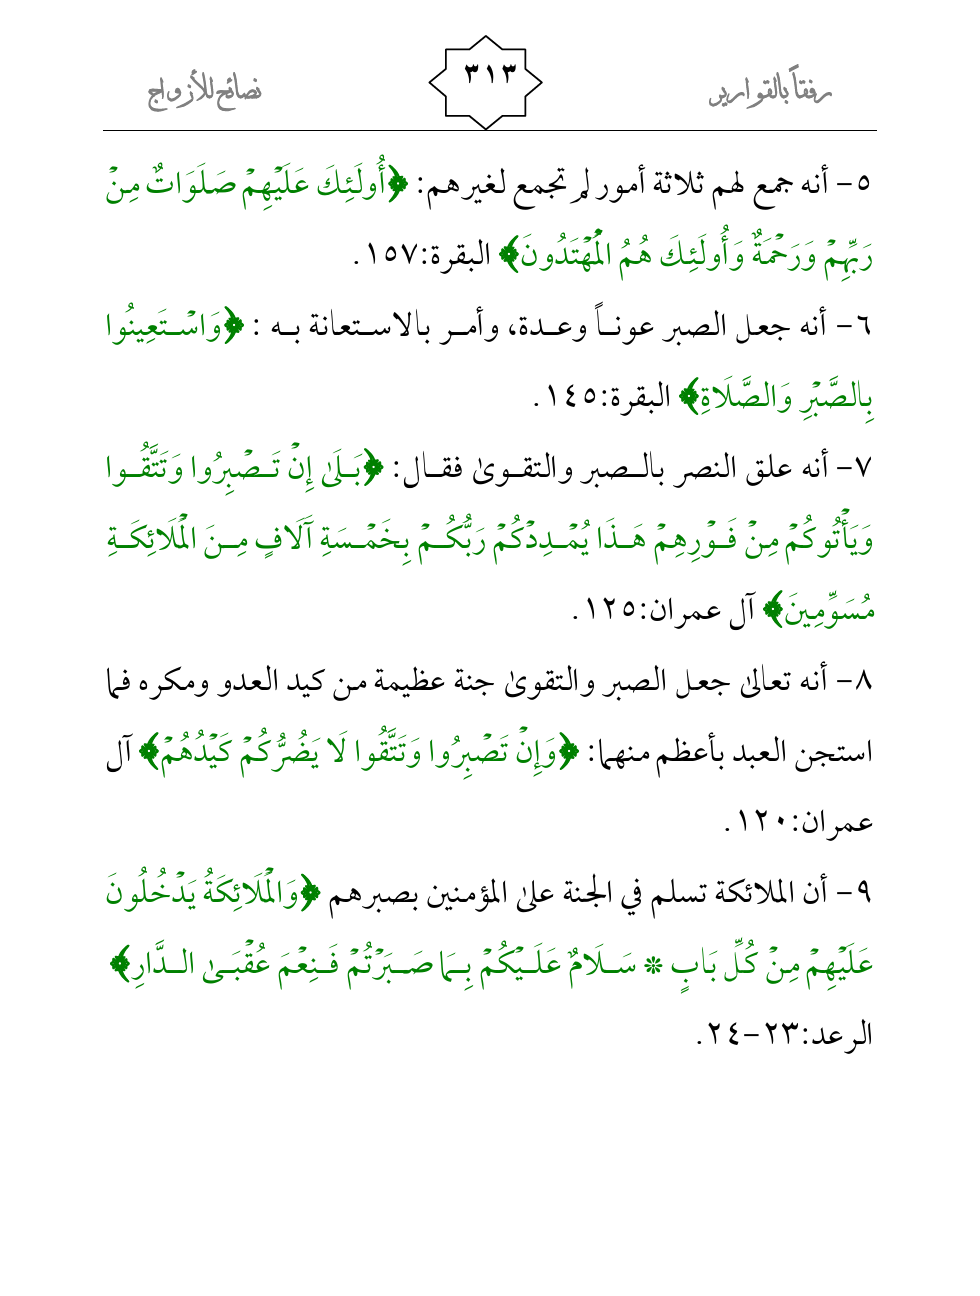 رفقاً بالقوارير ٣١٣ نصائح للأزواج
٥- أنه جمع لهم ثلاثة أمور لم تجمع لغيرهم: ﴿أُولَئِكَ عَلَيْهِمْ صَلَوَاتٌ مِنْ
رَبِّهِمْ وَرَحْمَةٌ وَأُولَئِكَ هُمُ الْمُهْتَدُونَ﴾ البقرة:١٥٧.
٦- أنه جعل الصبر عوناً وعدة، وأمر بالاستعانة به : ﴿وَاسْتَعِينُوا
بِالصَّبْرِ وَالصَّلَاةِ﴾ البقرة:١٤٥.
٧- أنه علق النصر بالصبر والتقوىٰ فقال: ﴿بَلَىٰ إِنْ تَصْبِرُوا وَتَتَّقُوا
وَيَأْتُوكُمْ مِنْ فَوْرِهِمْ هَذَا يُمْدِدْكُمْ رَبُّكُمْ بِخَمْسَةِ آَلَافٍ مِنَ الْمَلَائِكَةِ
مُسَوِّمِينَ﴾ آل عمران:١٢٥.
٨- أنه تعالىٰ جعل الصبر والتقوىٰ جنة عظيمة من كيد العدو ومكره فما
استجن العبد بأعظم منهما: ﴿وَإِنْ تَصْبِرُوا وَتَتَّقُوا لَا يَضُرُّكُمْ كَيْدُهُمْ﴾ آل
عمران:١٢٠.
٩- أن الملائكة تسلم في الجنة علىٰ المؤمنين بصبرهم ﴿وَالْمَلَائِكَةُ يَدْخُلُونَ
عَلَيْهِمْ مِنْ كُلِّ بَابٍ * سَلَامٌ عَلَيْكُمْ بِمَا صَبَرْتُمْ فَنِعْمَ عُقْبَىٰ الدَّارِ﴾
الرعد:٢٣-٢٤.